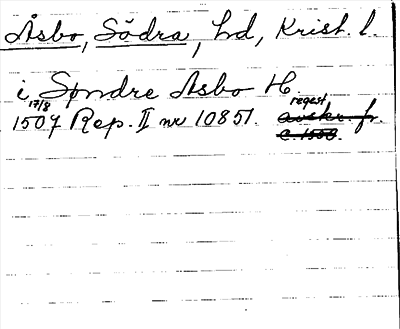 Åsbo, Södra, hd, Krist. l.
i Søndre Asbo H.
17/8 regest
1507 Rep. II nr 10851. avskr. fr.
c. 1550